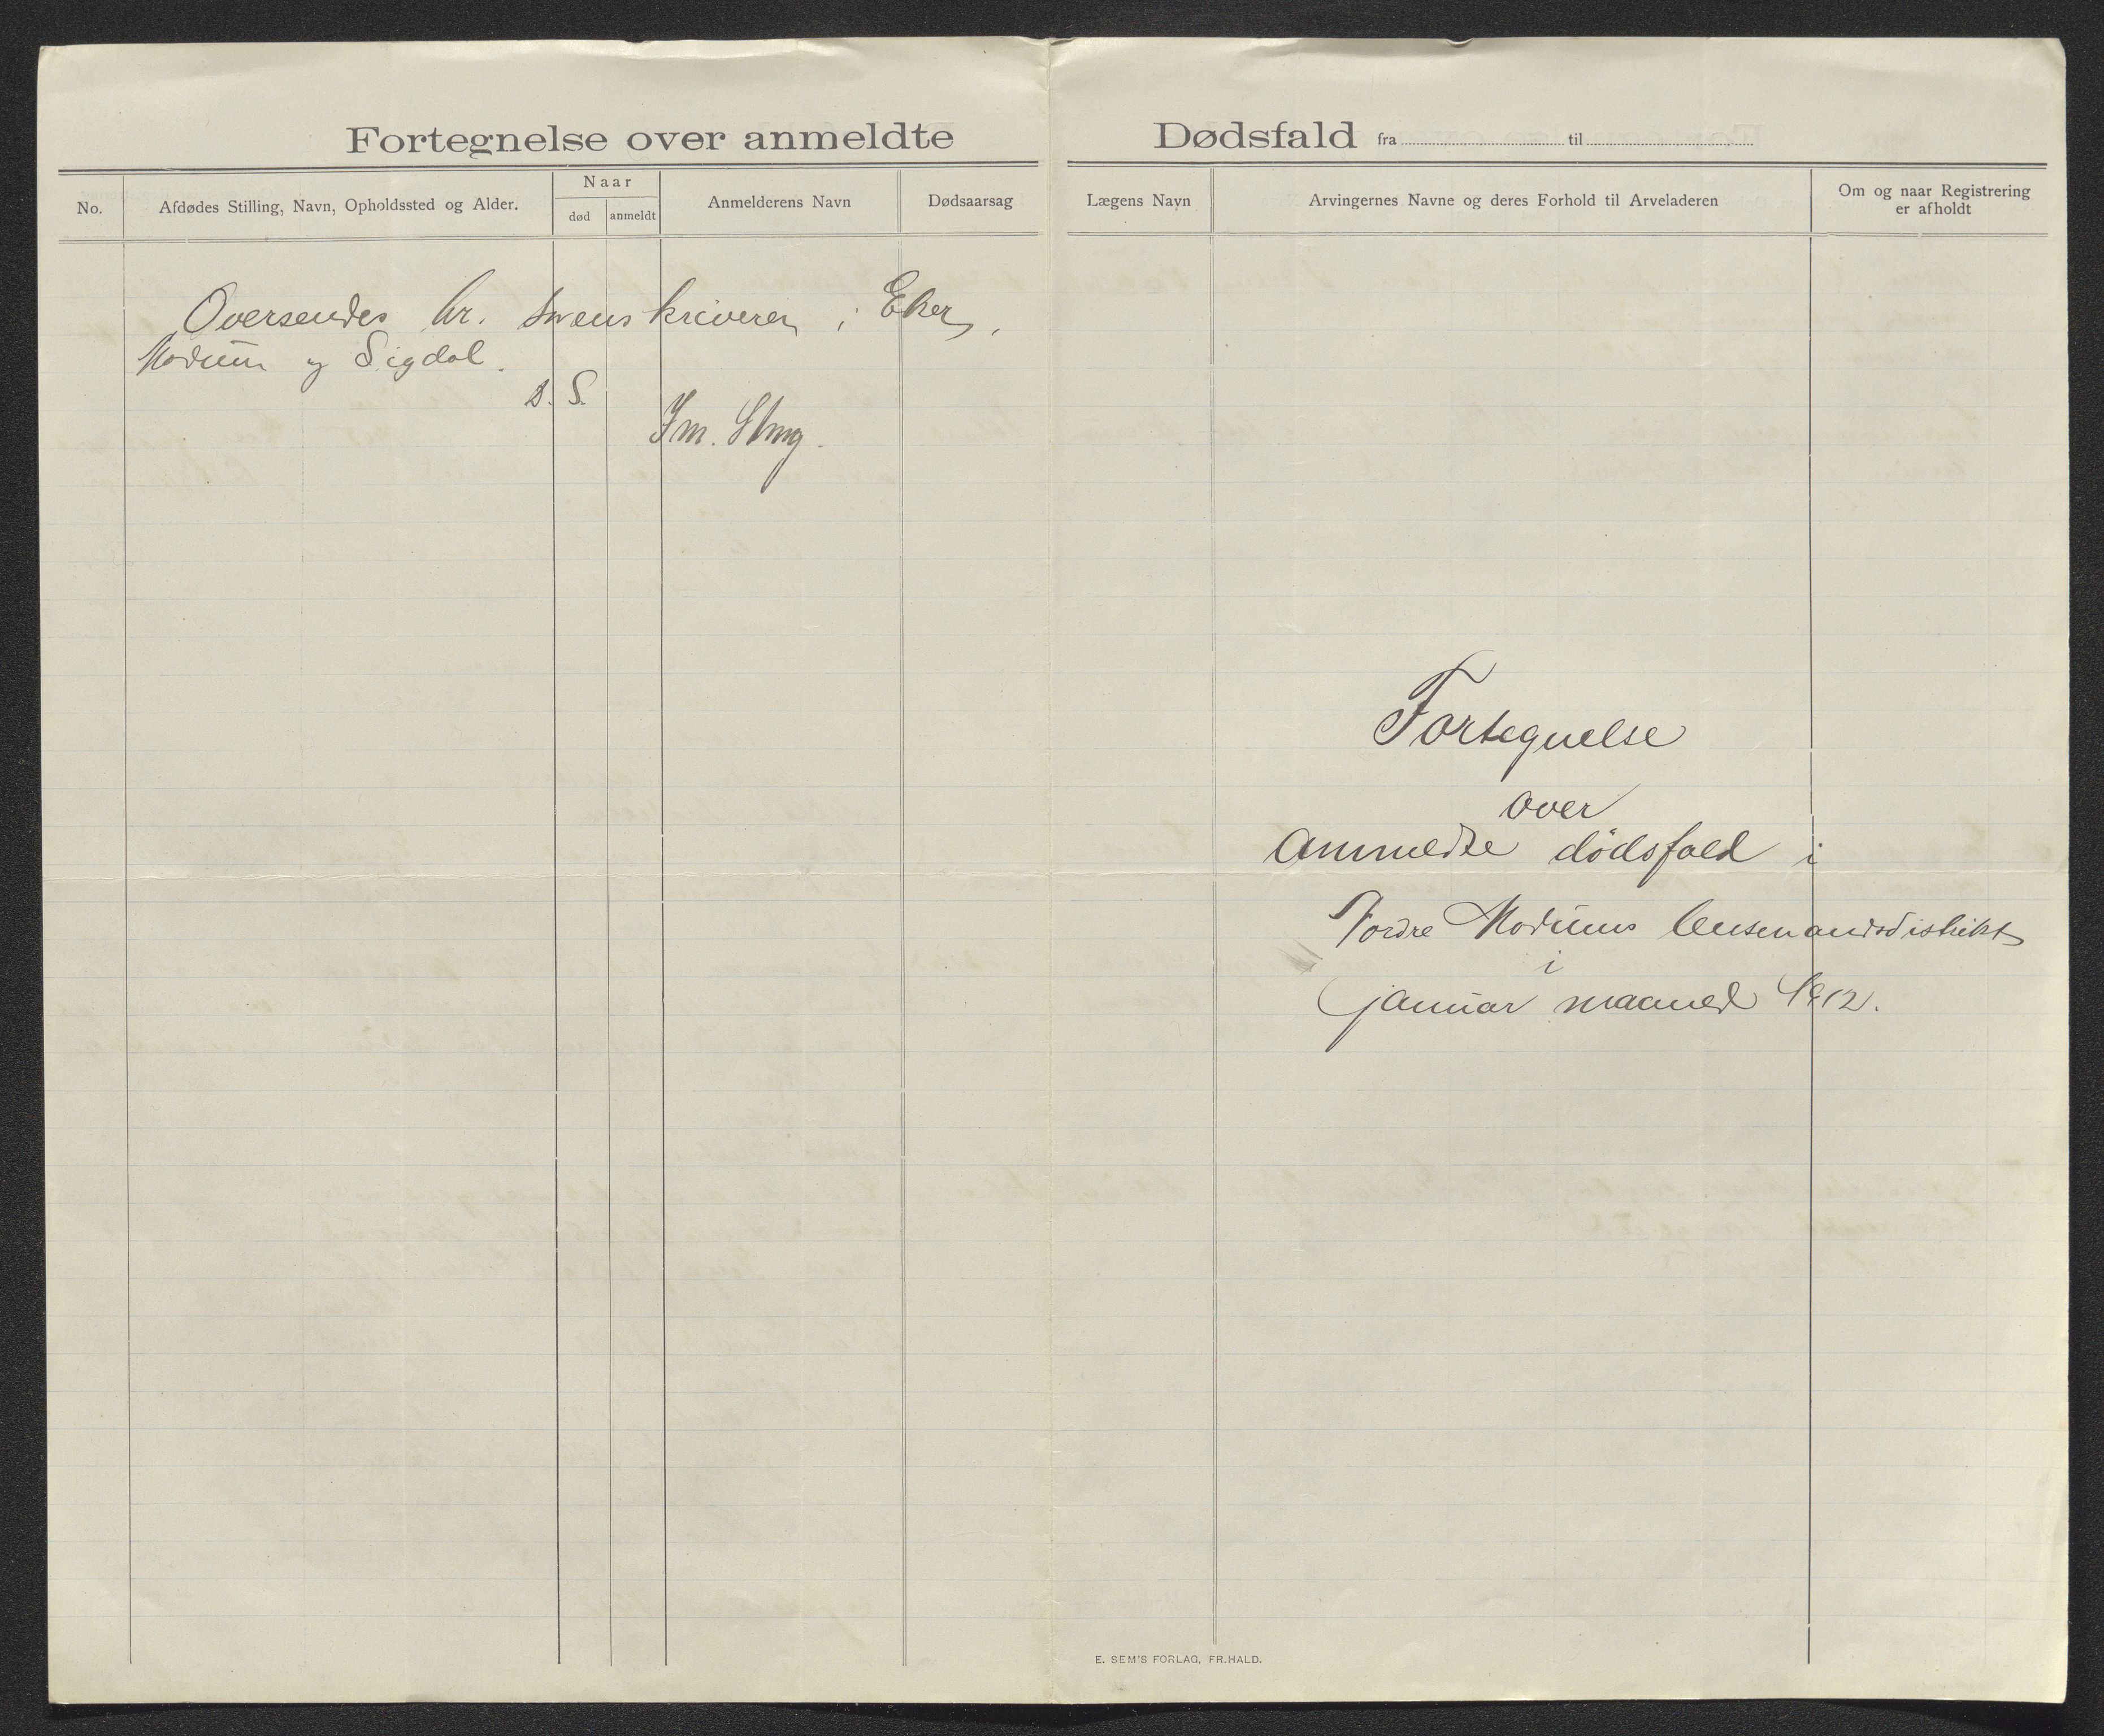 Fortegnelse over anmeldte Dødsfald fra til
No.
Afdødes Stilling, Navn, Opholdssted og Alder.
Naar
død
anmeldt
Anmelderens Navn
Dødsaarsag
Lægens Navn
Arvingernes Navne og deres Forhold til Arveladeren
Om og naar Registrering
er afholdt
Oversendes hr. sorenskriveren i Eker,
Modum og Sigdal.
D. S.
Fortegnelse
over
Anmeldte dödsfald i
Nordre Modums lensmandsdistrikt
i
januar maaned 1912.
E. SEM'S FORLAG, FR.HALD.